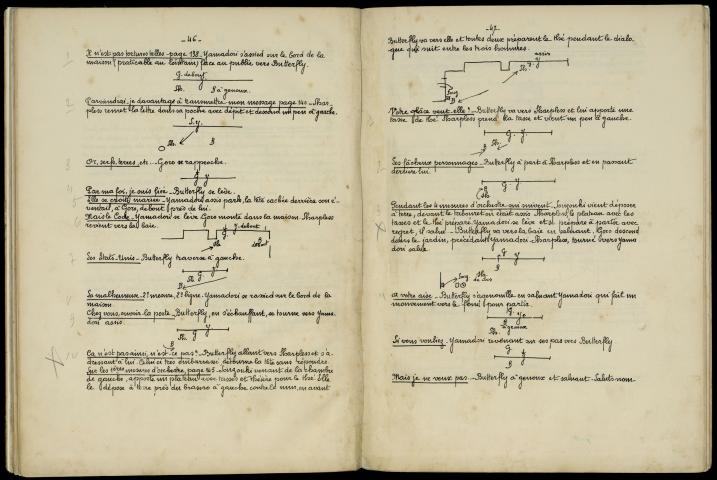 - 46 -
Il n'est pas tortures telles - page 138. Yamadori s'assied sur le bord de la
maison (praticable au lointain) face au public vers Butterfly.
G. debout
Sh. B à genoux.
1
Parviendrai je davantage à transmettre mon message page 140. - Shar-
pless remet la lettre dans sa poche avec dépit et descend un peu à gauche.
2
G. Y.
Sh. B
Or, serfs, terres, etc. - Goro se rapproche.
3
G Y
Par ma foi, je suis liée - Butterfly se lève.
4
Elle se croit mariée - Yamadori assis parle, la tête cachée derrière son é-
ventail, à Goro, debout près de lui.
5
Mais le Code - Yamadori se lève Goro monte dans la maison Sharpless
revient vers la baie.
6
G Y. debout
Sh. B debout
Les États-Unis - Butterfly traverse à gauche.
7
G Y
Sh. B
La malheureuse - 2e mesure, 2e ligne. Yamadori se rassied sur le bord de la
maison
8
Chez vous, ouvrir la porte - Butterfly, en s'échauffant, se tourne vers Yama-
dori assis.
9
G Y
Sh. B
Ça n'est pas ainsi, n'est-ce pas? - Butterfly allant vers Sharpless et s'a-
dressant à lui. Celui ci très embarrassé détourne la tête sans répondre
10
Sur les 1ères mesures d'orchestre, page 145 - Souzouki venant de la chambre
de gauche, apporte un plateau avec tasses et théière pour le thé. Elle
le dépose à terre près du brasero à gauche contre le mur, en avant
- 47 -
Butterfly va vers elle et toutes deux préparent le thé pendant le dialo-
gue qui suit entre les trois hommes.
assis
Sh. G. Y
Souz
B
Votre grâce veut-elle? - Butterfly va vers Sharpless et lui apporte une
tasse de thé Sharpless prend la tasse et vient un peu à gauche.
G. Y.
B Sh.
Les fâcheux personnages - Butterfly à part à Sharpless et en passant
derrière lui.
G Y
B
Sh.
Pendant les 4 mesures d'orchestre qui suivent. Souzouki vient déposer
à terre, devant le tabouret où était assis Sharpless, le plateau avec les
tasses et le thé préparé Yamadori se lève et se prépare à partir avec
regret, il salue - Butterfly va vers la baie en saluant, Goro descend
dans le jardin, précédant Yamadori - Sharpless, tourné vers Yama
dori salue.
B Y
Souz Sh.
de dos
A votre aise - Butterfly s'agenouille en saluant Yamadori qui fait un
mouvement vers le fond pour partir.
G. Y.
B
Sh. à genoux
Si vous vouliez - Yamadori revenant sur ses pas vers Butterfly
G Y
B
Mais je ne veux pas. - Butterfly à genoux et saluant - Saluts nom-